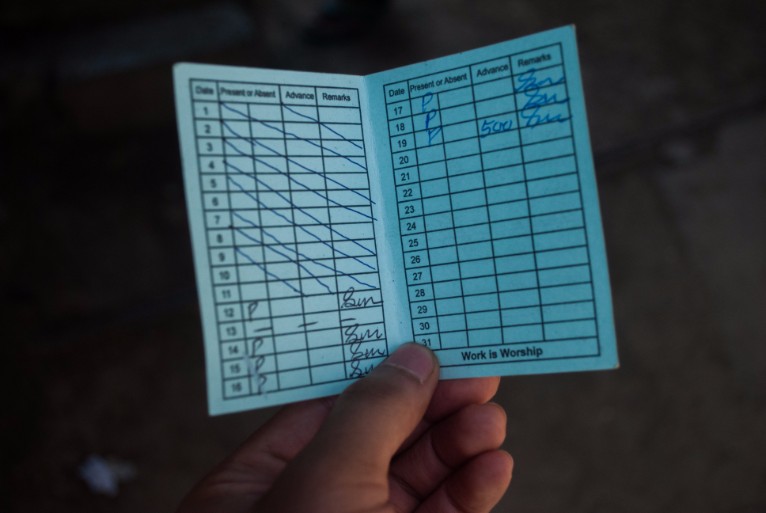 Date Present or Absent Advance Remarks
1
2
3
4
5
6
7
8
9
10
11
12 P
13 — — —
14 P
15 P
16 P
Date Present or Absent Advance Remarks
17 P
18 P
19 P 500
20
21
22
23
24
25
26
27
28
29
30
31
Work is Worship